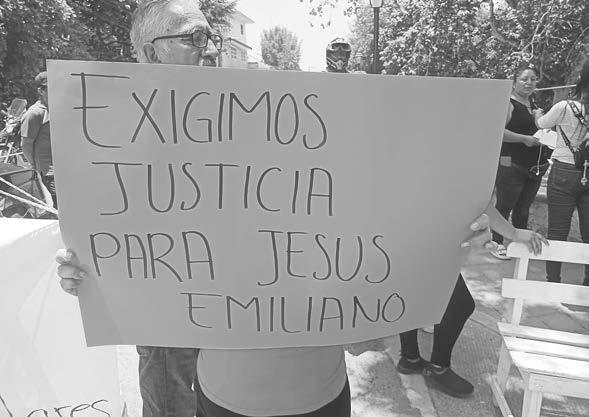 EXIGIMOS
JUSTICIA
PARA JESUS
EMILIANO